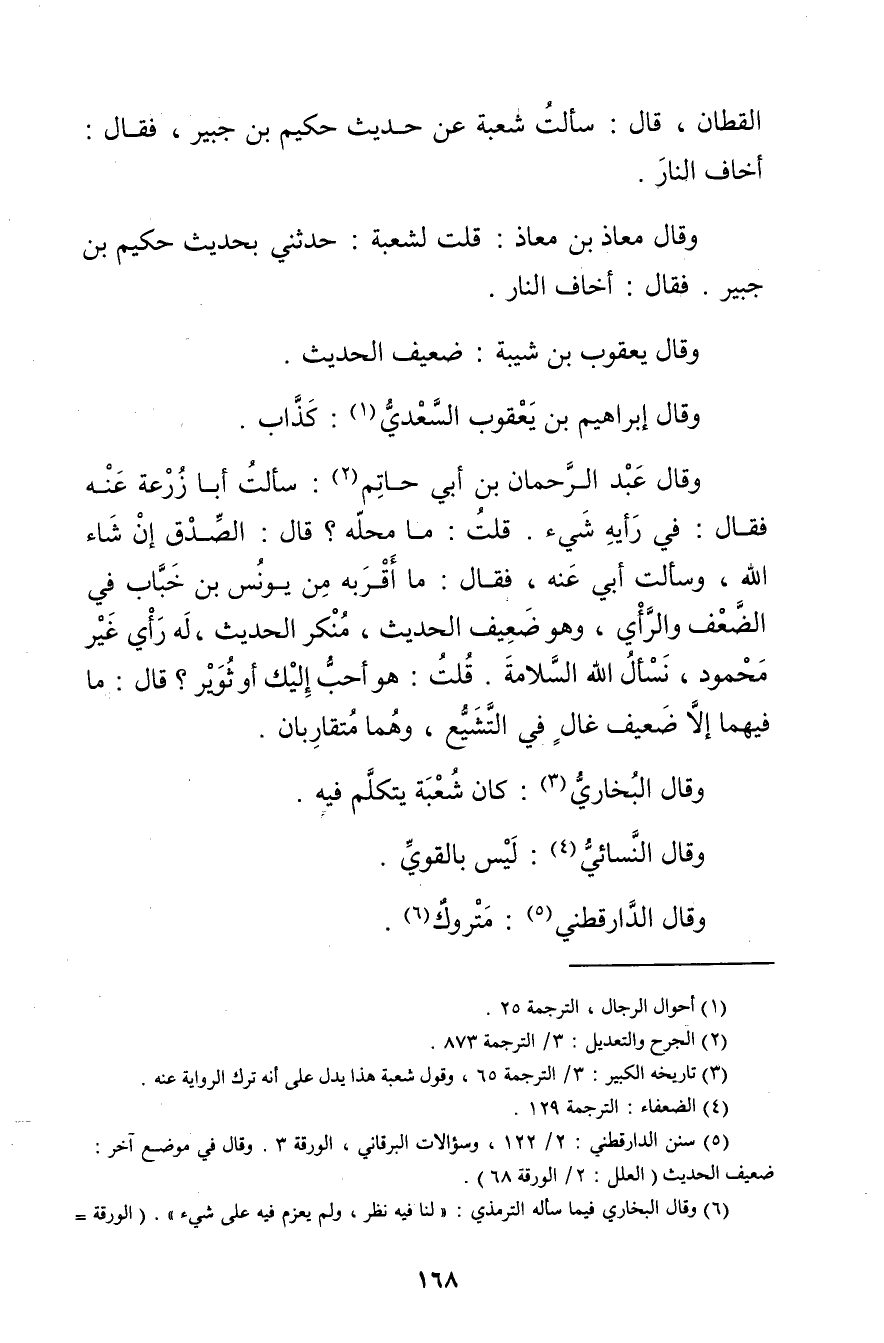 القطان ، قال : سألتُ شعبة عن حـديث حكيم بن جبير ، فقـال :
أخاف النارَ .
وقال معاذ بن معاذ : قلت لشعبة : حدثني بحديث حكيم بن
جبير . فقال : أخاف النار .
وقال يعقوب بن شيبة : ضعيف الحديث .
وقال إبراهيم بن يَعْقوب السَّعْديُّ(١) : كَذَّاب .
وقال عَبْد الـرَّحمان بن أبي حـاتِم(٢) : سألتُ أبـا زُرْعة عَنْـه
فقـال : في رَأيهِ شَيء . قلتُ : مـا محلّه ؟ قال : الصِّـدْق إنْ شَاء
الله ، وسألت أبي عَنه ، فقـال : ما أَقْـرَبه مِن يـونُس بن خَبَّاب في
الضَّعْف والرَّأْي ، وهو ضَعِيف الحديث ، مُنْكر الحديث ، لَه رَأْي غَيْر
مَحْمود ، نَسْألُ الله السَّلامةَ . قُلتُ : هو أحبُّ إِلَيْك أو ثُوَيْر ؟ قال : ما
فيهما إلاَّ ضَعيف غالٍ في التَّشَيُّع ، وهُما مُتقارِبان .
وقال البُخاريُّ(٣) : كان شُعْبَة يتكلَّم فيه .
وقال النَّسائيُّ(٤) : لَيْس بالقويِّ .
وقال الدَّارقطني(٥) : مَتْروكٌ(٦) .
(١) أحوال الرجال ، الترجمة ٢٥ .
(٢) الجرح والتعديل : ٣/ الترجمة ٨٧٣ .
(٣) تاريخه الكبير : ٣/ الترجمة ٦٥ ، وقول شعبة هذا يدل على أنه ترك الرواية عنه .
(٤) الضعفاء : الترجمة ١٢٩ .
(٥) سنن الدارقطني : ٢/ ١٢٢ ، وسؤالات البرقاني ، الورقة ٣ . وقال في موضـع آخر :
ضعيف الحديث ( العلل : ٢/ الورقة ٦٨ ) .
(٦) وقال البخاري فيما سأله الترمذي : « لنا فيه نظر ، ولم يعزم فيه على شيء » . ( الورقة =
١٦٨